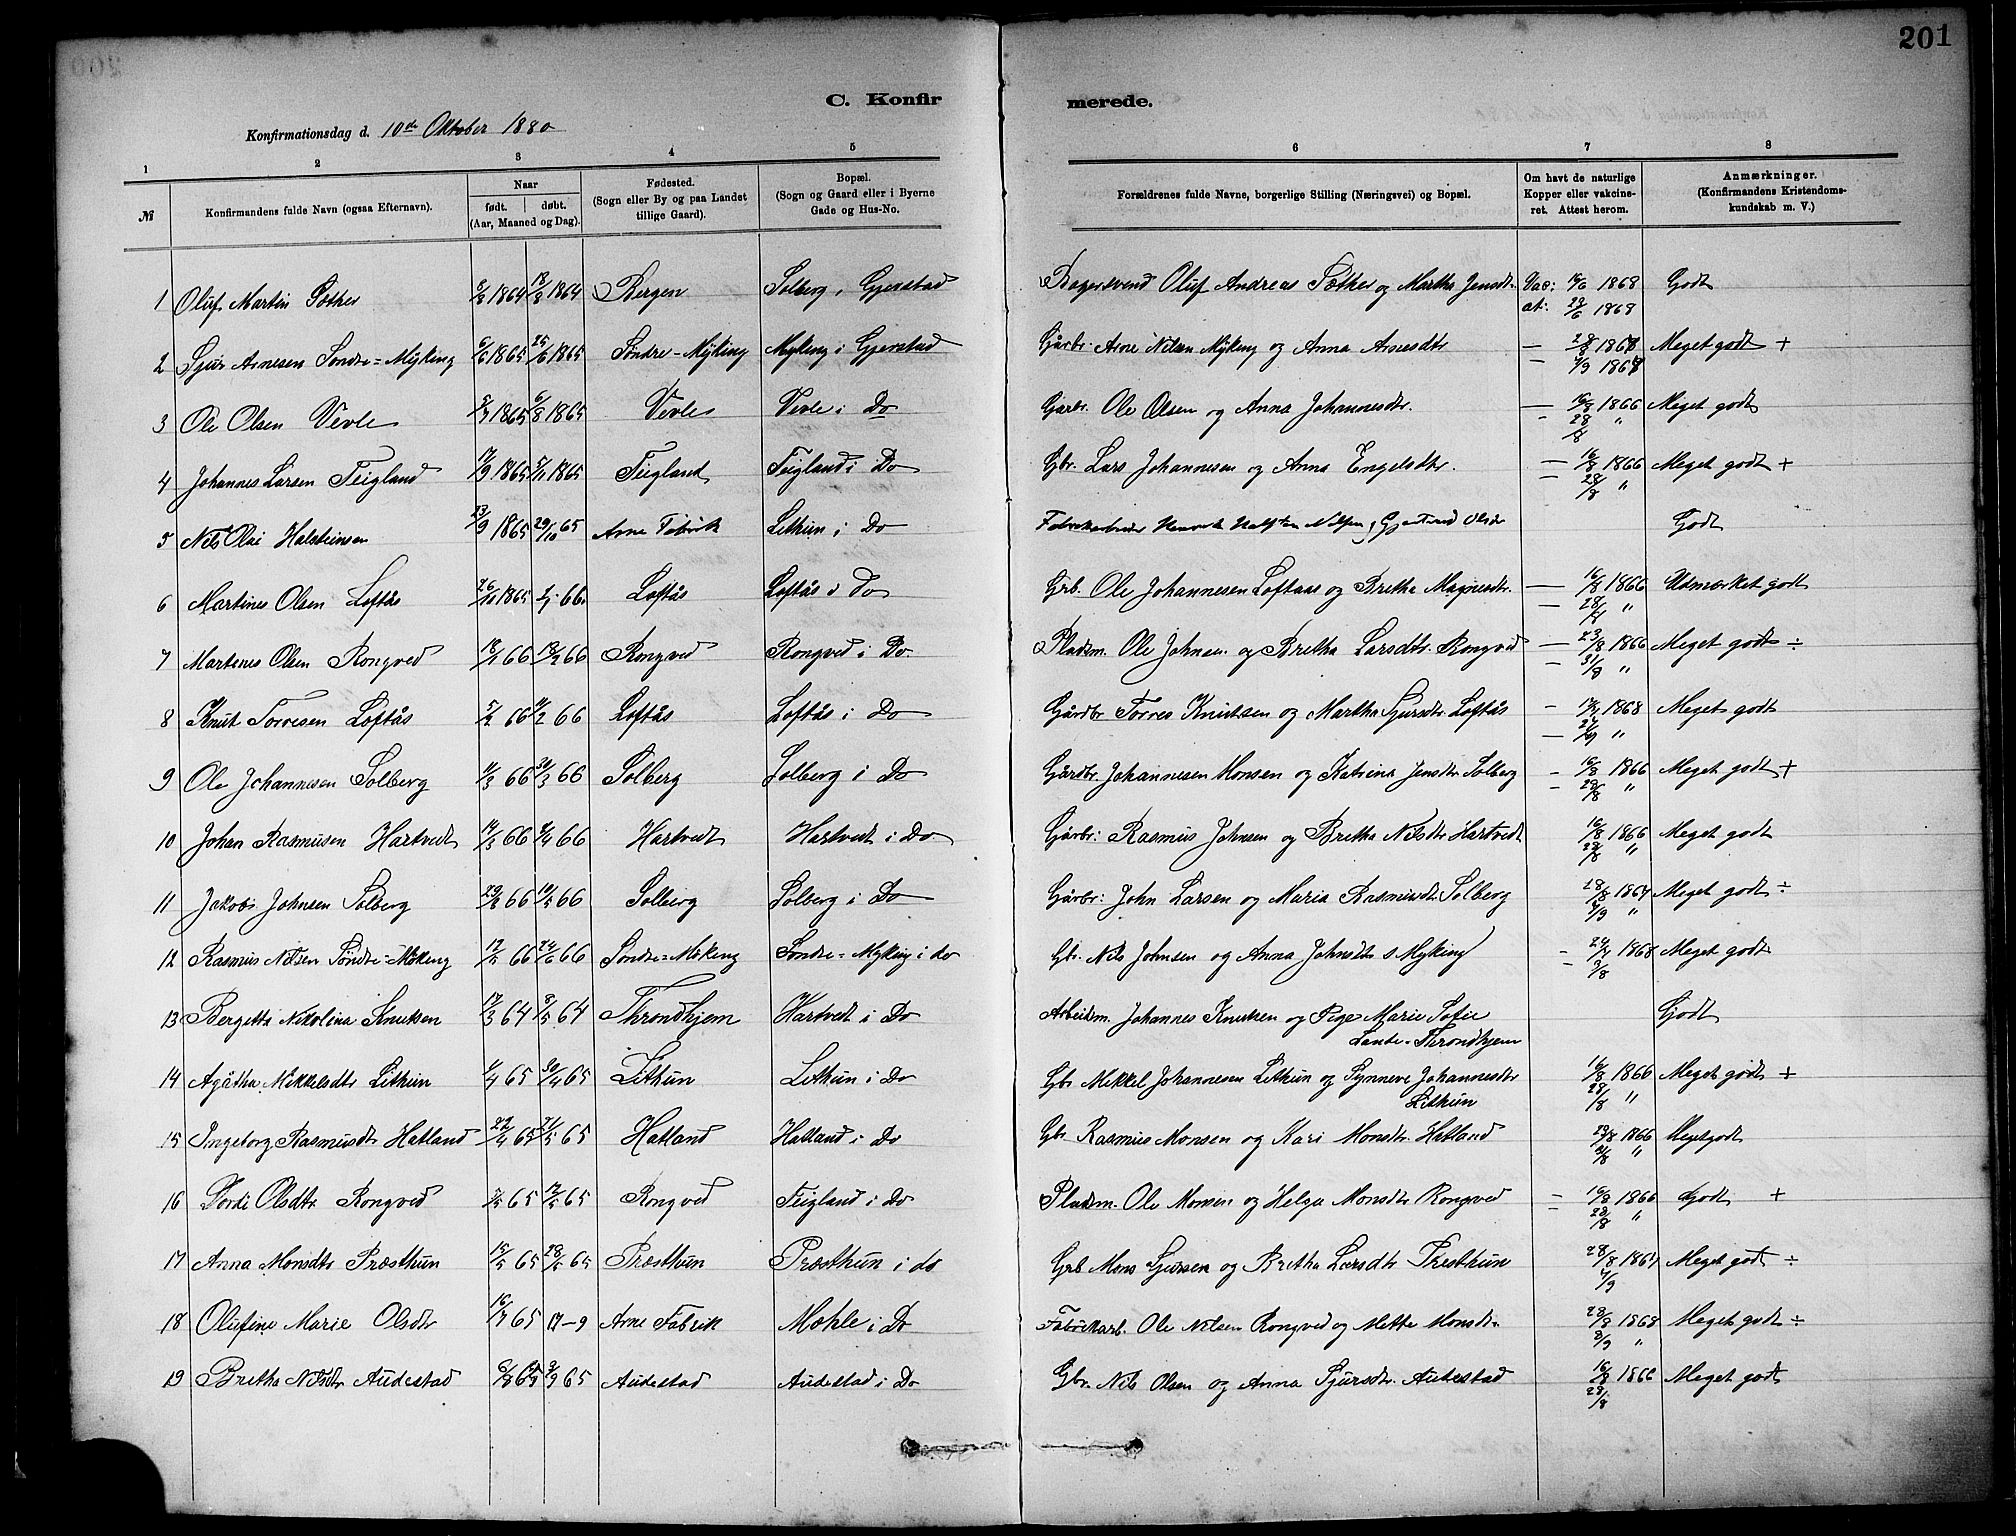 201
C. Konfirmerede.
Konfirmationsdag d. 10de Oktober 1880
1 2 3 4 5 6 7 8
№
Konfirmandens fulde Navn (ogsaa Efternavn).
Naar
født. døbt.
(Aar, Maaned og Dag).
Fødested.
(Sogn eller By og paa Landet
tillige Gaard).
Bopæl.
(Sogn og Gaard eller i Byerne
Gade og Hus-No.
Forældrenes fulde Navne, borgerlige Stilling (Næringsvei) og Bopæl.
Om havt de naturlige
Kopper eller vakcine-
ret. Attest herom.
Anmærkninger.
(Konfirmandens Kristendoms-
kundskab m. V.)
1 Oluf Martin Sæther 1864 1864 Bergen Solberg i Gjerstad Bagersvend Oluf Andreas Sæther og Martha Jensdtr. Vac: 1868 Godt
at: 28/6 1868
2 Sjur Arnesen Søndre=Myking 6/6 1865 25/6 1865 Søndre-Myking Myking i Gjerstad Gårbr. Arne Nilsen Myking og Anna Arnesdtr — 28/8 1867 Meget godt +
— 4/9 1867
3 Ole Olsen Vevle 1865 6/8 1865 Vevle Vevle i Do Garbr. Ole Olsen og Anna Johannesdtr. — 16/8 1866 Meget godt
- 28/8 "
4 Johannes Larsen Teigland 17/9 1865 5/11 1865 Teigland Teigland i Do Gbr. Lars Johannesen og Anna Engelsdtr. — 16/8 1866 Meget godt +
— 28/8 "
5 Nils Olai Halsteinsen 23/9 1865 29/10 65 Arne Fabrik Lethun i Do Fabrikarbeider Nilsen Godt
6 Martines Olsen Loftås 26/10 1865 1/1 66 Loftås Loftås i Do Grb. Ole Johannesen Loftaas og Bretha Magnesdtr. — 16/8 1866 Udmærket godt
— 28/8 "
7 Martines Olsen Rongved 18/1 66 18/2 66 Rongved Rongved i Do Pladsm. Ole Johnsen og Bretha Larsdtr. Rongved — 23/8 1866 Meget godt ÷
— 31/8 "
8 Knut Torresen Loftås 5/2 66 11/2 66 Loftås Loftås i Do Gårdbr Torres Knutsen og Martha Sjursdtr Loftås - 1868 Meget godt
— "
9 Ole Johannesen Solberg 11/3 66 30/3 66 Solberg Solberg i Do Gårdbr. Johannesen Monsen og Katrina Jensdtr Solberg - 16/8 1866 Meget godt +
- 28/8 "
10 Johan Rasmusen Hartvedt 14/3 66 2/4 66 Hartvedt Hartvedt i Do Gårbr: Rasmus Johnsen og Bretha Nilsdtr Hartvedt 16/8 1866 Meget godt
28/8 "
11 Jakob Johnsen Solberg 66 66 Solberg Solberg i Do Gårbr: John Larsen og Maria Rasmusdtr. Solberg 28/8 1867 Meget godt ÷
4/9 "
12 Rasmus Nilsen Søndre=Myking 66 24/6 66 Søndre=Myking Søndre=Myking i do Gbr. Nils Johnsen og Anna Johnsdtr S Myking - 1868 Meget godt
- 3/8
13 Bergetta Nikolina Knutsen 17/3 64 8/5 64 Throndhjem Hartvedt i Do Arbeidsm. Johannes Knutsen og Pige Marie Sofie Godt
Throndhjem
14 Agåtha Mikkelsdtr Lithun 11/4 65 30/4 65 Lithun Lethun i Do Gbr Mikkel Johannesen Lithun og Synneve Johannesdtr 16/8 1866 Meget godt +
Lithun 28/8 "
15 Ingeborg Rasmusdtr Hatland 22/4 65 21/5 65 Hatland Hatland i Do Gbr. Rasmus Monsen og Kari Monsdtr. Hatland 23/8 1866 Megetgodt
31/8 "
16 Dordi Olsdtr Rongved 65 65 Rongved Teigland i Do Pladsm. Ole Monsen og Helga Monsdtr Rongved — 16/8 1866 Godt +
— 28/8 "
17 Anna Monsdtr Præsthun 15/5 65 28/5 65 Præsthun Præsthun i do Grb Mons Sjursen og Bretha Larsdtr Presthun 28/8 1867 Meget godt ÷
4/9
18 Olufine Marie Olsdtr 16/7 65 17-9 Arne Fabrik Mæhle i Do Fabrikarb. Ole Nilsen Rongved og Mette Monsdtr 1868 Meget godt ÷
3/9 "
19 Bretha Nilsdtr Audestad 65 3/9 65 Audestad Audestad i Do Gbr. Nils Olsen og Anna Sjursdtr. Audestad 16/8 1866 Meget godt
28/8